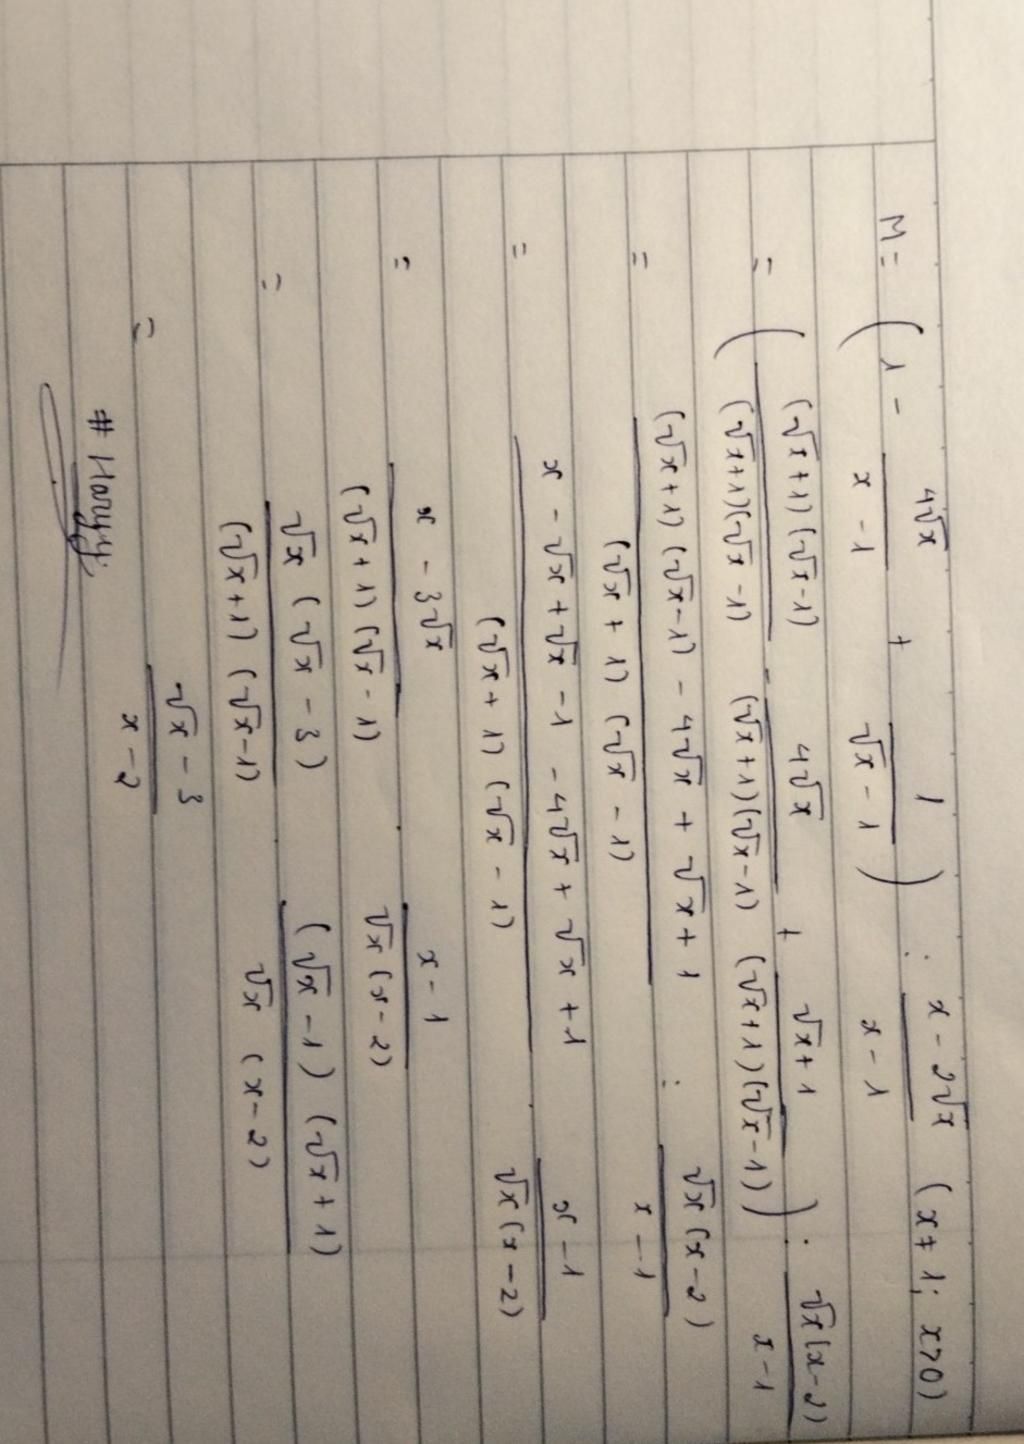 M = ( 1 - 4√x / x - 1 + 1 / √x - 1 ) : x - 2√x / x - 1 (x ≠ 1; x > 0)
= ( (√x + 1)(√x - 1) / (√x + 1)(√x - 1) - 4√x / (√x + 1)(√x - 1) + √x + 1 / (√x + 1)(√x - 1) ) : √x(x - 2) / x - 1
= (√x + 1)(√x - 1) - 4√x + √x + 1 / (√x + 1)(√x - 1) : √x(x - 2) / x - 1
= x - √x + √x - 1 - 4√x + √x + 1 / (√x + 1)(√x - 1) . x - 1 / √x(x - 2)
= x - 3√x / (√x + 1)(√x - 1) . x - 1 / √x(x - 2)
= √x(√x - 3) / (√x + 1)(√x - 1) . (√x - 1)(√x + 1) / √x(x - 2)
= √x - 3 / x - 2